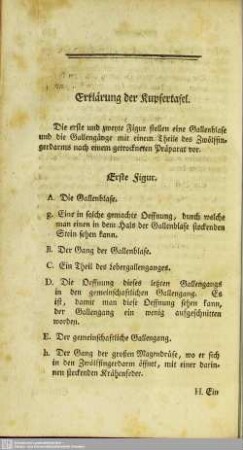 Erklärung der Kupfertafel.
Die erste und zweyte Figur stellen eine Gallenblase
und die Gallengänge mit einem Theile des Zwölffin-
gerdarms nach einem getrockneten Präparat vor.
Erste Figur.
A. Die Gallenblase.
g. Eine in solche gemachte Oeffnung, durch welche
man einen in dem Hals der Gallenblase steckenden
Stein sehen kann.
B. Der Gang der Gallenblase.
C. Ein Theil des Lebergallenganges.
D. Die Oeffnung dieses letztern Gallengangs
in den gemeinschaftlichen Gallengang. Es
ist, damit man diese Oeffnung sehen kann,
der Gallengang ein wenig aufgeschnitten
worden.
E. Der gemeinschaftliche Gallengang.
h. Der Gang der großen Magendrüse, wo er sich
in den Zwölffingerdarm öffnet, mit einer darin-
nen steckenden Krähenfeder.
H. Ein